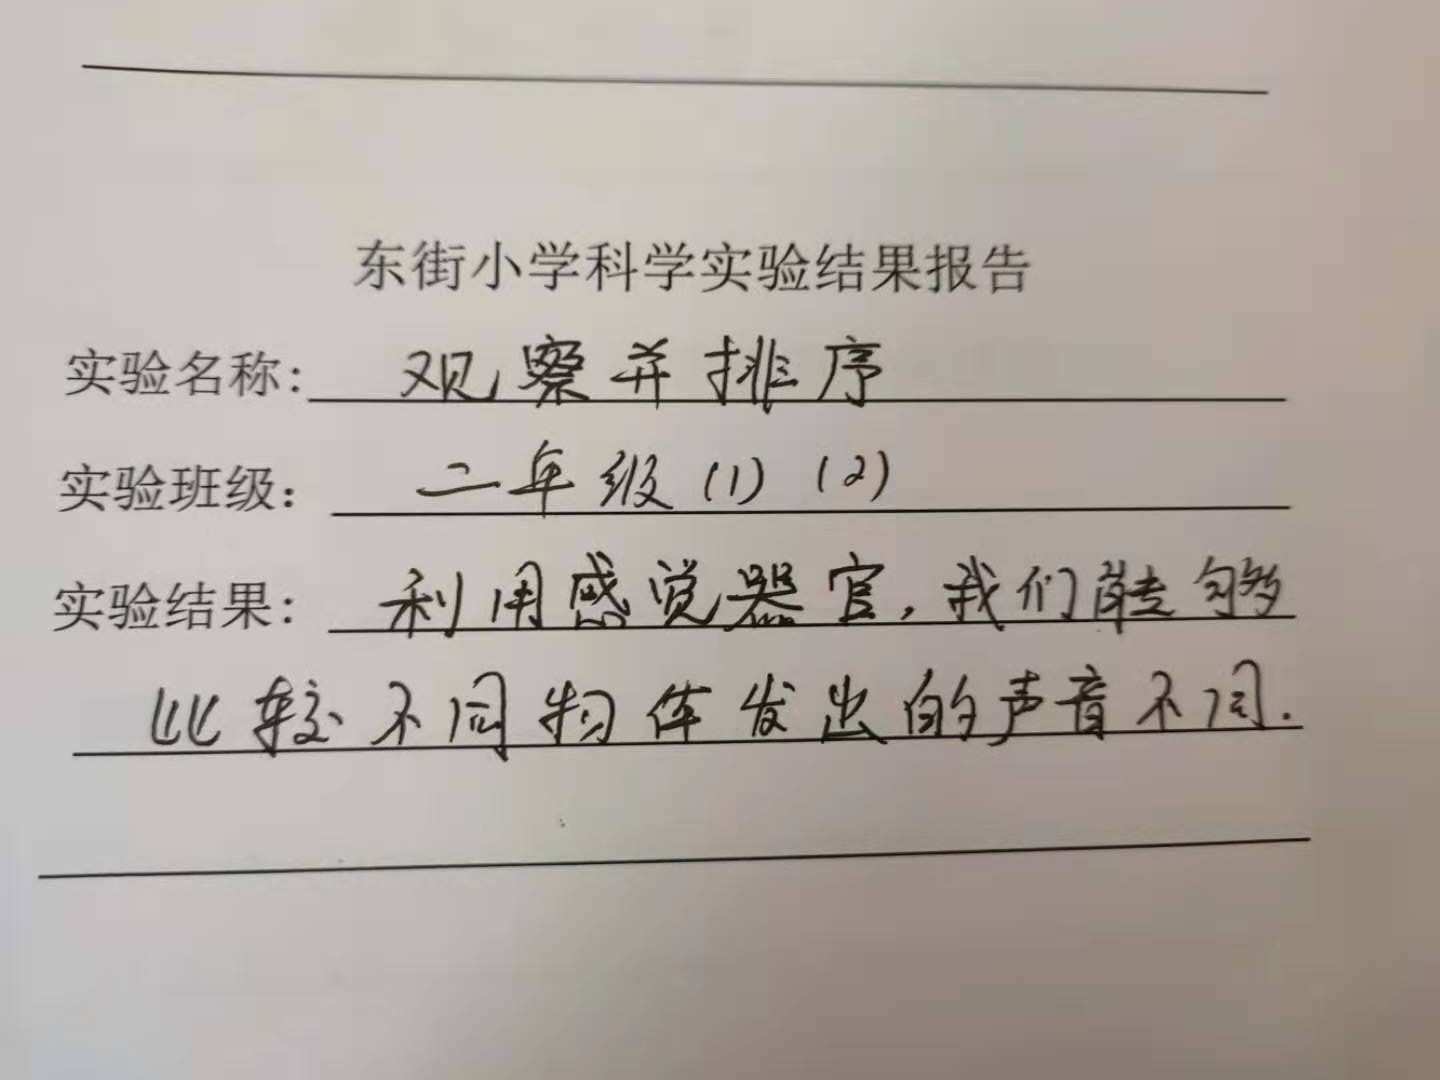 东街小学科学实验结果报告
实验名称：观察并排序
实验班级：二年级(1) (2)
实验结果：利用感觉器官,我们能够
比较不同物体发出的声音不同.